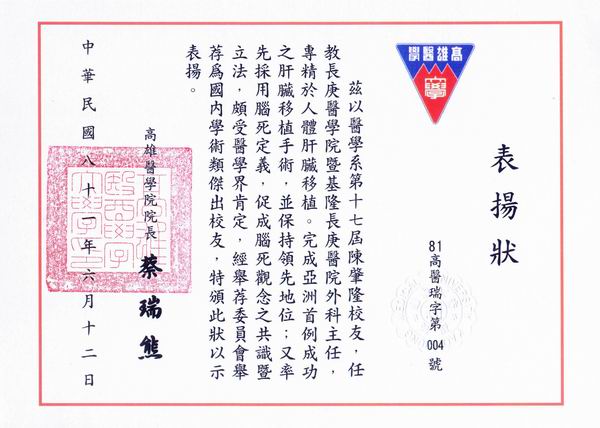 高雄醫學
表揚狀
81高醫瑞字第004號
茲以醫學系第十七屆陳肇隆校友，任
教長庚醫學院暨基隆長庚醫院外科主任，
專精於人體肝臟移植。完成亞洲首例成功
之肝臟移植手術，並保持領先地位；又率
先採用腦死定義，促成腦死觀念之共識暨
立法，頗受醫學界肯定，經舉荐委員會舉
荐為國內學術類傑出校友，特頒此狀以示
表揚。
高雄醫學院院長 蔡瑞熊
中華民國八十一年六月十二日